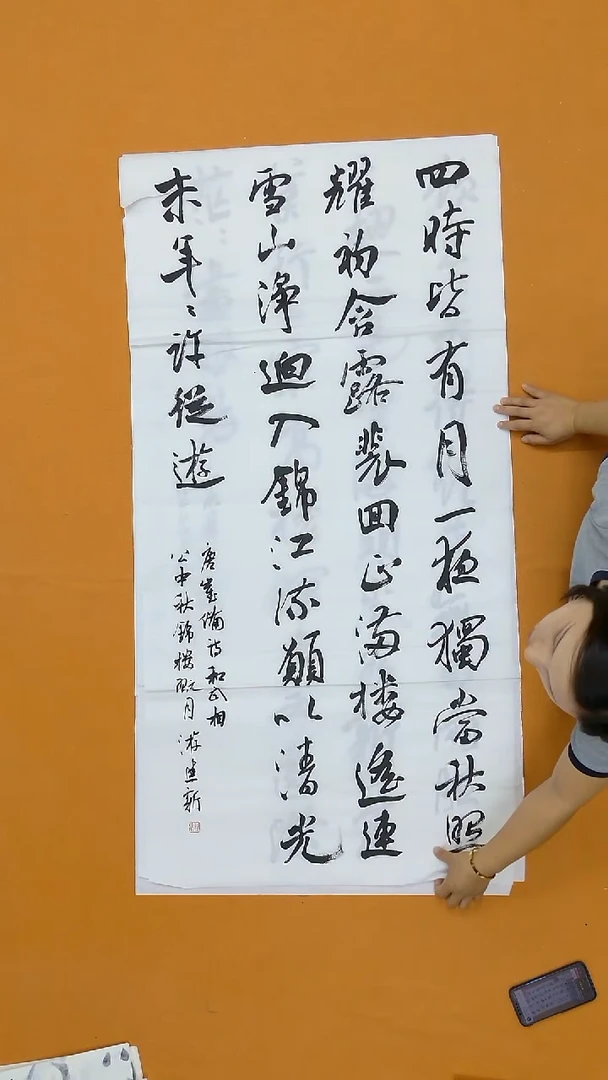 四時皆有月一夜獨當秋照
耀初含露裴回正滿樓遙連
雪山淨迥入錦江流願以清光
末年〻許從遊
唐崔備詩和武相
公中秋錦樓翫月 游新